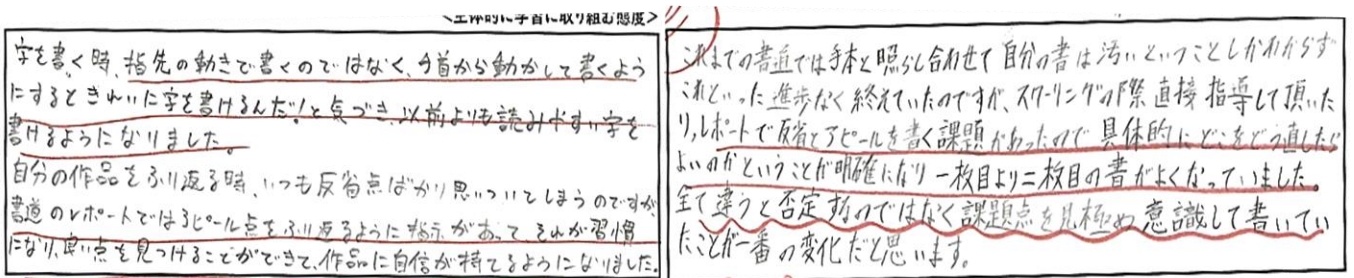 <主体的に学習に取り組む態度>
字を書く時、指先の動きで書くのではなく、手首から動かして書くよう
にするときれいに字を書けるんだ!と気づき、以前よりも読みやすい字を
書けるようになりました。
自分の作品をふり返る時、いつも反省点ばかり思いついてしまうのですが、
書道のレポートではアピール点をふり返るように指示があって、それが習慣
になり、良い点を見つけることができて、作品に自信が持てるようになりました。
これまでの書道では手本と照らし合わせて自分の書は汚いということしかわからず
これといった進歩なく終えていたのですが、スクーリングの際直接指導して頂いた
り、レポートで反省とアピールを書く課題があったので具体的にどこをどう直したら
よいのかということが明確になり一枚目より二枚目の書がよくなっていました。
全て違うと否定するのではなく課題点を見極め意識して書いてい
たことが一番の変化だと思います。